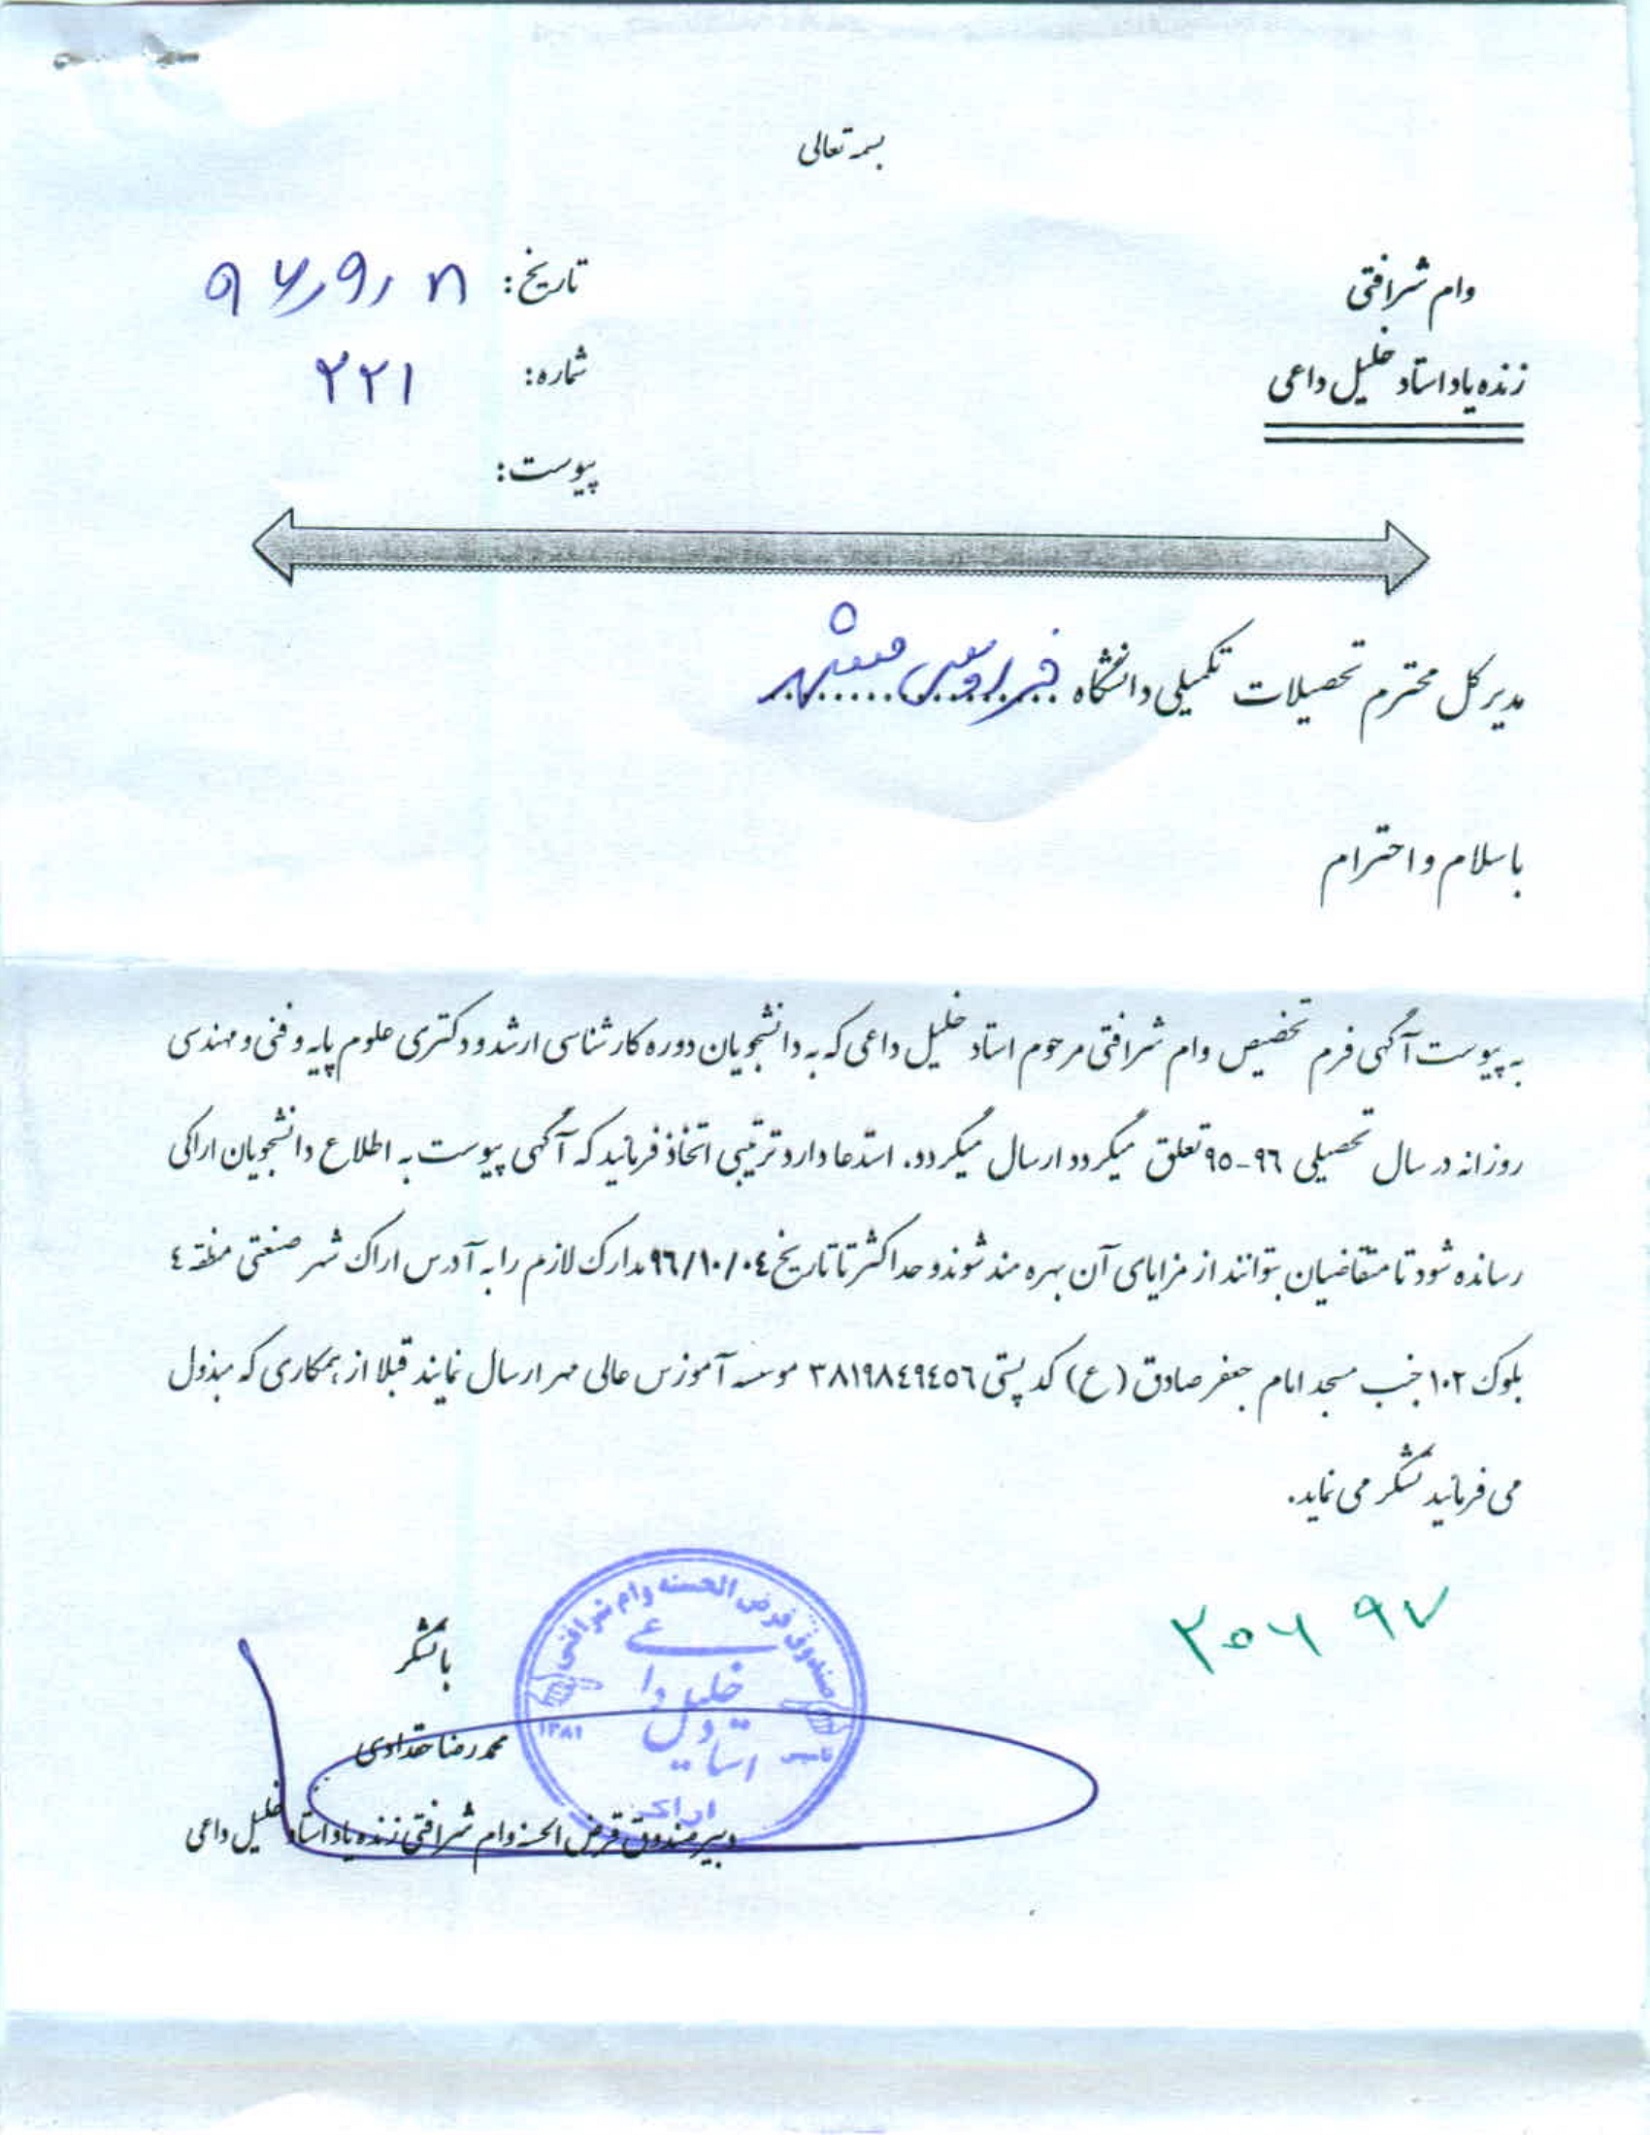 بسمه تعالی
وام شرافتی
زنده یاد استاد خلیل داعی
تاریخ: ۹۶٫۹٫۸
شماره: ۲۲۱
پیوست:
مدیر کل محترم تحصیلات تکمیلی دانشگاه فردوسی مشهد
با سلام و احترام
به پیوست آگهی فرم تخصیص وام شرافتی مرحوم استاد خلیل داعی که به دانشجویان دوره کارشناسی ارشد و دکتری علوم پایه و فنی و مهندسی
روزانه در سال تحصیلی ۹۶-۹۵ تعلق میگردد ارسال میگردد. استدعا دارد ترتیبی اتخاذ فرمائید که آگهی پیوست به اطلاع دانشجویان اراکی
رسانده شود تا متقاضیان بتوانند از مزایای آن بهره مند شوند و حداکثر تا تاریخ ۹۶/۱۰/۰۴ مدارک لازم را به آدرس اراک شهر صنعتی منطقه ۴
بلوک ۱۰۲ جنب مسجد امام جعفر صادق (ع) کد پستی ۳۸۱۹۸۴۹۴۵۶ موسسه آموزش عالی مهر ارسال نمایند قبلا از همکاری که مبذول
می فرمائید تشکر می نماید.
۲۵۶۹۷
با تشکر
محمد رضا حقدادی
دبیر صندوق قرض الحسنه وام شرافتی زنده یاد استاد خلیل داعی
صندوق قرض الحسنه وام شرافتی
استاد خلیل داعی
تاسیس ۱۳۸۱
اراک